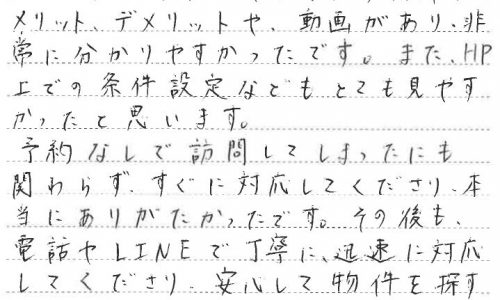 メリット、デメリットや、動画があり、非
常に分かりやすかったです。また、HP
上での条件設定などもとても見やす
かったと思います。
予約なしで訪問してしまったにも
関わらず、すぐに対応してくださり、本
当にありがたかったです。その後も、
電話やLINEで丁寧に、迅速に対応
してくださり、安心して物件を探す